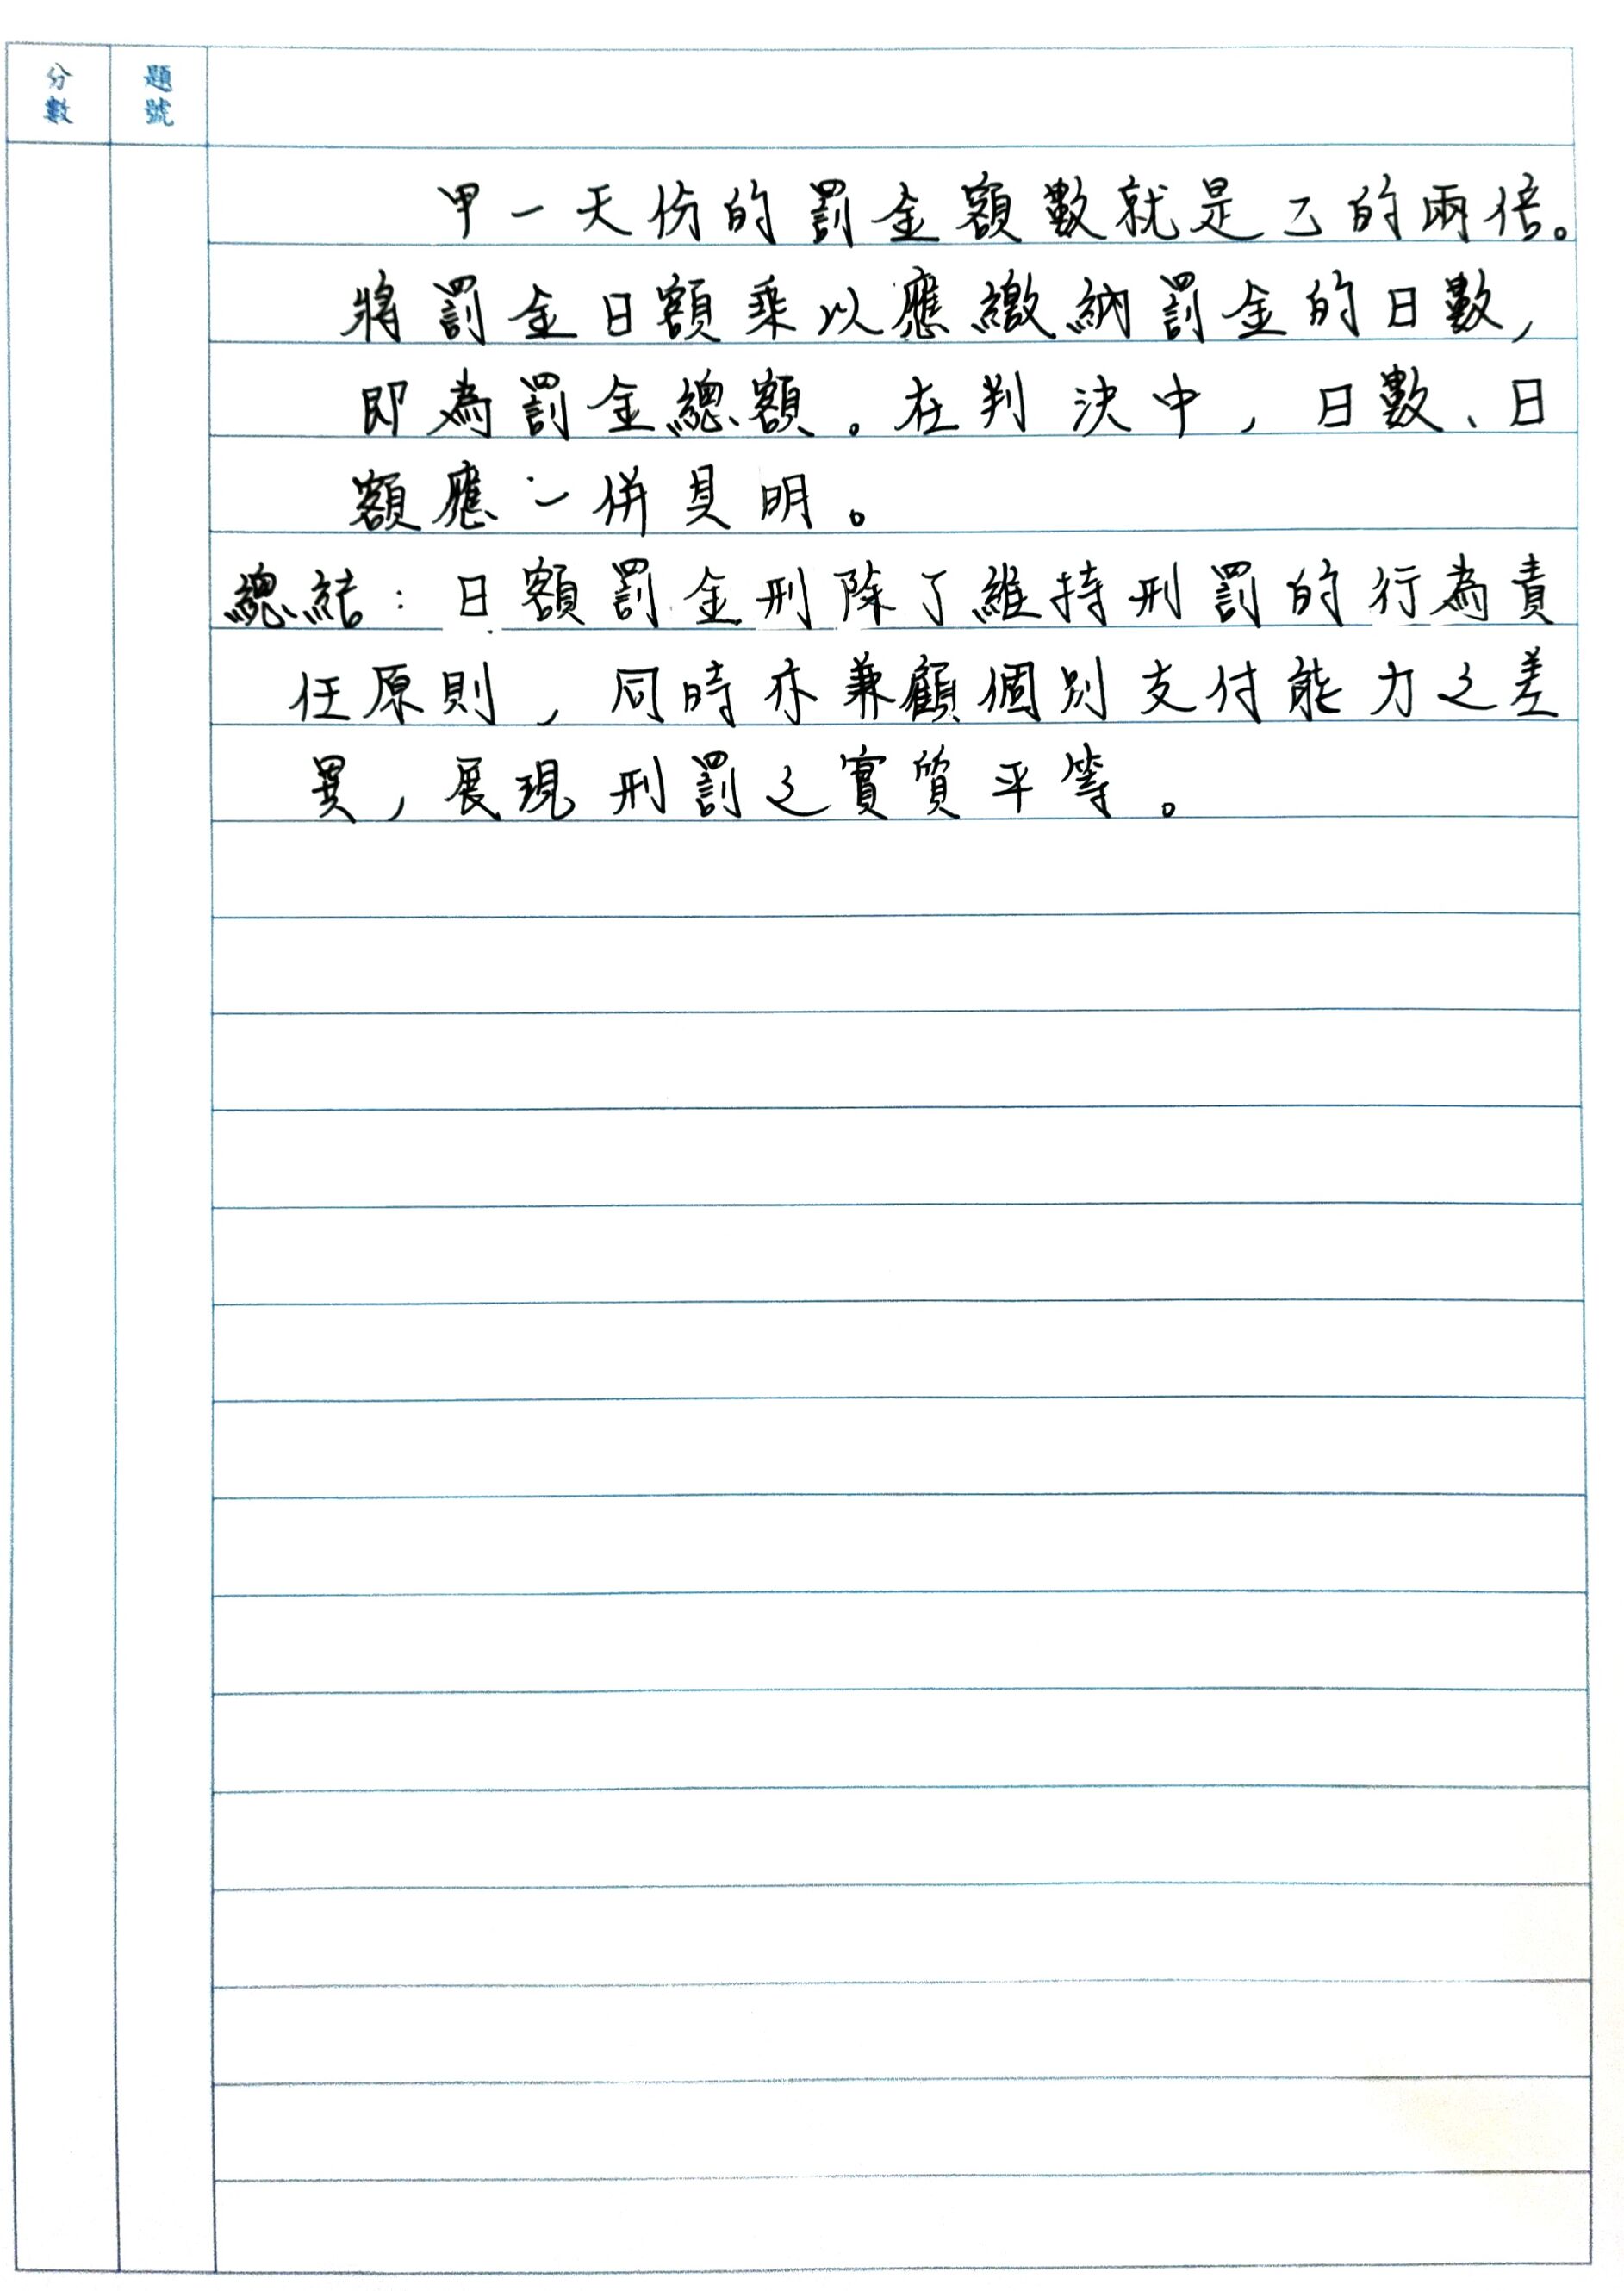 分數 題號
甲一天份的罰金額數就是乙的兩倍。
將罰金日額乘以應繳納罰金的日數,
即為罰金總額。在判決中,日數、日
額應一併具明。
總結:日額罰金刑除了維持刑罰的行為責
任原則,同時亦兼顧個別支付能力之差
異,展現刑罰之實質平等。